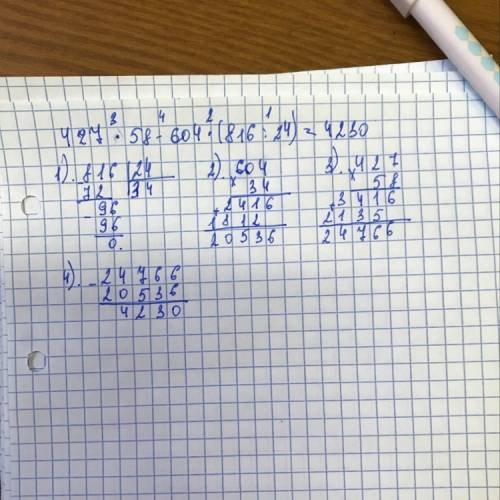 3 4 2 1
427 · 58 - 604 · (816 : 24) = 4230
1). 816 | 24 2). 604 3). 427
72 34 × 34 × 58
- 96 + 2416 + 3416
96 1812 2135
0. 20536 24766
4). - 24766
20536
4230